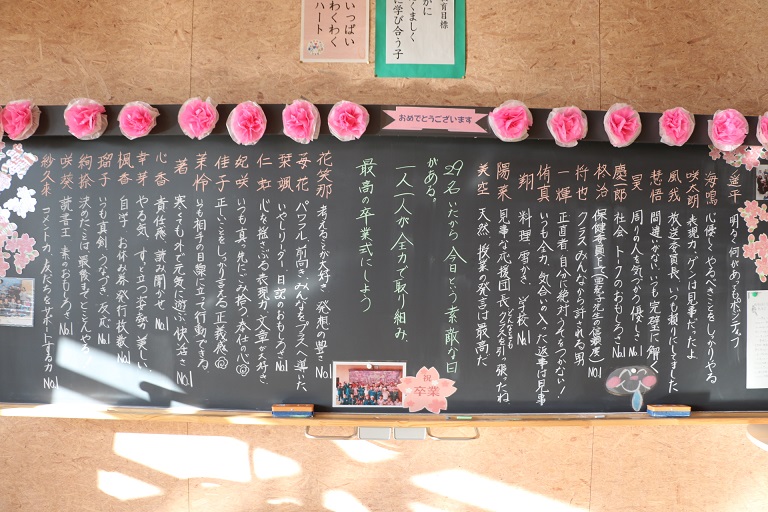 いっぱい
わくわく
ハート
育目標
かに
くましく
に学び合う子
おめでとうございます
遥平 明るく何があってもポジティブ
海鳴 心優しくやるべきことをしっかりやる
咲太朗 表現力バツグン 見事だったよ
風我 放送委員長 いつも頼りにしてました
慧悟 間違いがない いつも完璧に解く
昊 周りの人を気づかう優しさ No1
慶一郎 社会 トークのおもしろさ No1
柊治 保健委員長
一輝 正直者 自分に絶対うそをつかない!
侑真 いつも全力、気合いの入った返事は見事
翔 料理 雪かき 学校No1
陽菜 見事な応援団長 クラスを引っ張ったね
美空 天然 授業の発言は最高だ
29名いたから 今日という素敵な日
がある。
一人一人が全力で取り組み、
最高の卒業式にしよう
花笑那 考えることが大好き 発想の豊かさ No1
苺花 パワフル 前向き みんなをプラスへ導いた
栞颯 いやしリーダー、日記のおもしろさ No1
仁 心を揺さぶる表現力 文章が大好き
妃咲 いつも真っ先にごみ拾う奉仕の心◎
佳子 正しいことをしっかり言える正義感◎
茉怜 いつも相手の目線に立って行動できる
蒼 寒くても外で元気に遊ぶ 快活さ No1
心香 責任感 読み聞かせ No1
幸芽 やる気 すっと立つ姿勢の美しい
楓香 自学 お休み券発行枚数 No1
瑠子 いつも真剣 うなづき、反応 No1
絢捺 決めたことは最後までこえる
咲葵 読書王 素のおもしろさ No1
紗久来 コメント力 友だちをサポートする力 No1
祝
卒業